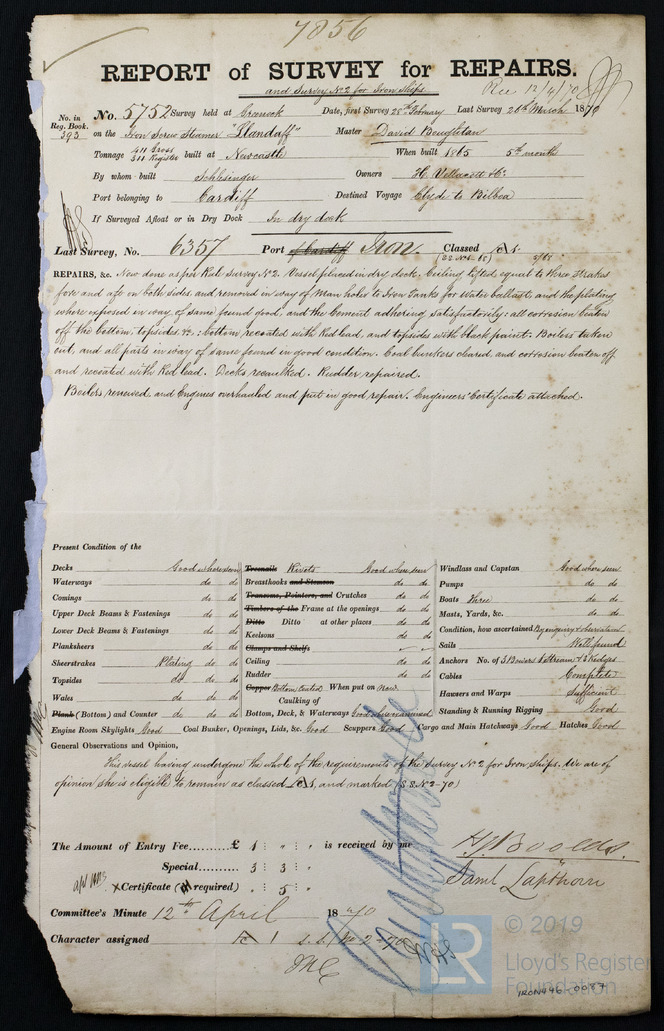 7856
REPORT of SURVEY for REPAIRS.
and Survey No 2 for Iron Ships
Rec 12/4/70
No. in Reg. Book. 393
No. 5752 Survey held at Greenock Date, first Survey 28th February Last Survey 26th March 1870
on the Iron Screw Steamer "Llandaff" Master David Boughton
Tonnage 411 Gross 311 Register built at Newcastle When built 1865 5th month
By whom built Schlesinger Owners H. Vellacott & Co
Port belonging to Cardiff Destined Voyage Clyde to Bilboa
If Surveyed Afloat or in Dry Dock In dry dock
Last Survey, No. 6357 Port of Cardiff Iron Classed A 1
REPAIRS, &c. Now done as per Rule Survey No 2. Vessel placed in dry dock. Ceiling lifted equal to three Strakes
fore and aft on both sides, and removed in way of Man holes to Iron Tanks for water ballast, and the plating
where exposed in way of same found good, and the Cement adhering satisfactorily: all corrosion beaten
off the bottom, topsides &c.: bottom recoated with Red lead, and topsides with black paint. Boilers taken
out, and all parts in way of same found in good condition. Coal bunkers cleared, and corrosion beaten off
and recoated with Red lead. Decks recaulked. Rudder repaired.
Boilers renewed, and Engines overhauled and put in good repair. Engineers' Certificate attached.
Present Condition of the
Decks Good where seen
Waterways do do
Comings do do
Upper Deck Beams & Fastenings do do
Lower Deck Beams & Fastenings do do
Planksheers do do
Sheerstrakes Plating do do
Topsides do do do
Wales do do
Plank (Bottom) and Counter do do do
Treenails Rivets Good where seen
Breasthooks and Stemson do do
Transoms, Pointers, and Crutches do do
Timbers of the Frame at the openings do do
Ditto Ditto at other places do do
Keelsons do do
Clamps and Shelfs
Ceiling do do
Rudder do do
Copper Bottom coated When put on now
Caulking of
Bottom, Deck, & Waterways Good where examined
Windlass and Capstan Good where seen
Pumps do do
Boats Three do do
Masts, Yards, &c. do do
Condition, how ascertained By enquiry & observation
Sails Well found
Anchors No. of 3 Bowers 1 Stream & 2 Kedges
Cables Complete
Hawsers and Warps Sufficient
Standing & Running Rigging Good
Engine Room Skylights Good Coal Bunker, Openings, Lids, &c. Good Scuppers Good Cargo and Main Hatchways Good Hatches Good
General Observations and Opinion,
This vessel having undergone the whole of the requirements of the Survey No 2 for Iron Ships. We are of
opinion she is eligible to remain as classed A 1, and marked (S.S. No 2-70)
The Amount of Entry Fee......... £ 1 : " : " is received by me
Special........... 3 : 3 : "
Certificate (if required) " : 5 : "
H.J. Boolds.
Saml Lapthorn
Committee's Minute 12th April 1870
Character assigned A 1 s.s. No 2-70
© 2019
Lloyd's Register
Foundation
LR
IRON446-0087